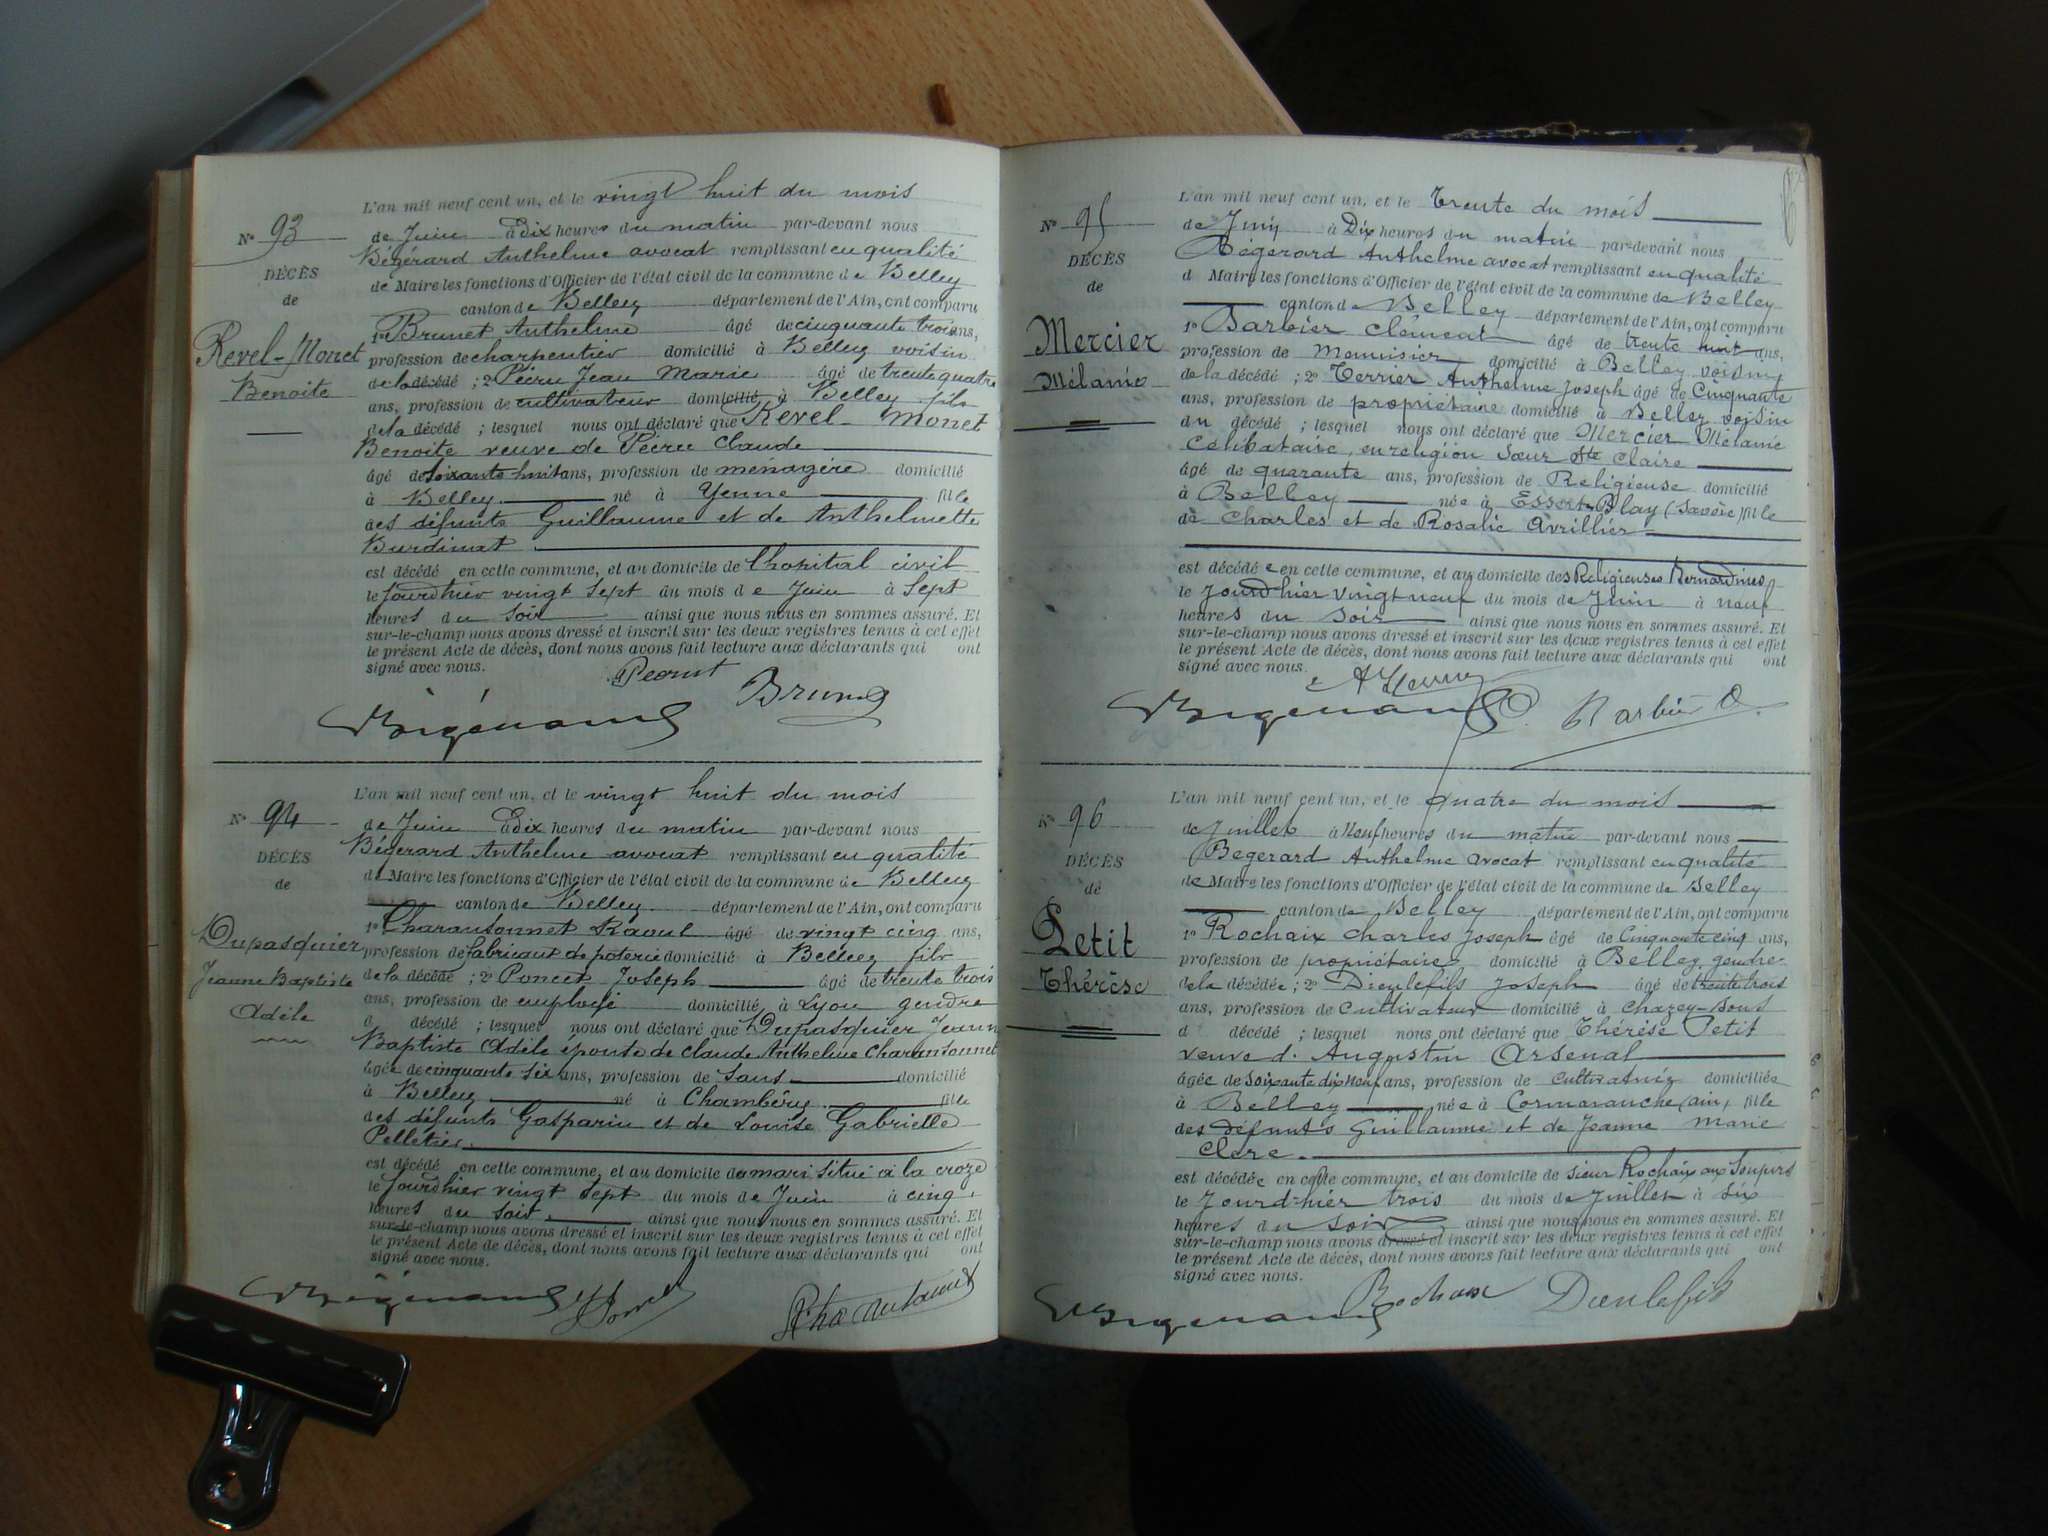 N° 93
DÉCÈS
de
Revel-Monet
Benoite
L'an mil neuf cent un, et le vingt huit du mois
de Juin à Dix heures du matin par-devant nous
Bégérard Anthelme avocat remplissant en qualité
de Maire les fonctions d'Officier de l'état civil de la commune de Belley
canton de Belley département de l'Ain, ont comparu
1° Brunet Anthelme âgé de cinquante trois ans,
profession de charpentier domicilié à Belley voisin
de la décédé ; 2° Pécru Jean Marie âgé de trente quatre
ans, profession de cultivateur domicilié à Belley fils
de la décédé ; lesquel nous ont déclaré que Revel-Monet
Benoite veuve de Pécru Claude
âgé de soixante huit ans, profession de ménagère domicilié
à Belley né à Yenne fille
des défunts Guillaume et de Anthelmette
Burdinat
est décédé en cette commune, et au domicile de l'hopital civil
le jourdhier vingt sept du mois de Juin à Sept
heures du soir ainsi que nous nous en sommes assuré. Et
sur-le-champ nous avons dressé et inscrit sur les deux registres tenus à cet effet
le présent Acte de décès, dont nous avons fait lecture aux déclarants qui ont
signé avec nous.
Brunet
Bégérard
N° 94
DÉCÈS
de
Dupasquier
Jeanne Baptiste
Adèle
L'an mil neuf cent un, et le vingt huit du mois
de Juin à Dix heures du matin par-devant nous
Bégerard Anthelme avocat remplissant en qualité
de Maire les fonctions d'Officier de l'état civil de la commune de Belley
canton de Belley département de l'Ain, ont comparu
1° Charansonnet Raoul âgé de vingt cinq ans,
profession de fabricant de poterie domicilié à Belley fils
de la décédé ; 2° Poncet Joseph âgé de trente trois
ans, profession de employé domicilié à Lyon gendre
d décédé ; lesquel nous ont déclaré que Dupasquier Jeanne
Baptiste Adèle épouse de Claude Anthelme Charansonnet
âgée de cinquante six ans, profession de sans domicilié
à Belley né à Chambéry fille
des défunts Gasparin et de Louise Gabrielle
Pelletier
est décédé en cette commune, et au domicile du mari situé à la croze
le jourdhier vingt sept du mois de Juin à cinq
heures du soir ainsi que nous nous en sommes assuré. Et
sur-le-champ nous avons dressé et inscrit sur les deux registres tenus à cet effet
le présent Acte de décès, dont nous avons fait lecture aux déclarants qui ont
signé avec nous.
Bégérard
N° 95
DÉCÈS
de
Mercier
Mélanie
L'an mil neuf cent un, et le Trente du mois
de Juin à Dix heures du matin par-devant nous
Bégerard Anthelme avocat remplissant en qualité
d Maire les fonctions d'Officier de l'état civil de la commune de Belley
canton de Belley département de l'Ain, ont comparu
1° Barbier Clément âgé de trente huit ans,
profession de Menuisier domicilié à Belley voisin
de la décédé ; 2° Terrier Anthelme Joseph âgé de Cinquante
ans, profession de propriétaire domicilié à Belley voisin
du décédé ; lesquel nous ont déclaré que Mercier Mélanie
Célibataire, en religion Sœur Ste Claire
âgé de quarante ans, profession de Religieuse domicilié
à Belley née à Essert-Blay (Savoie) fille
de Charles et de Rosalie Avrillier
est décédée en cette commune, et au domicile des Religieuses Bernardines
le jourd'hier vingt neuf du mois de Juin à neuf
heures du soir ainsi que nous nous en sommes assuré. Et
sur-le-champ nous avons dressé et inscrit sur les deux registres tenus à cet effet
le présent Acte de décès, dont nous avons fait lecture aux déclarants qui ont
signé avec nous.
Bégérard Barbier
N° 96
DÉCÈS
de
Petit
Thérèse
L'an mil neuf cent un, et le quatre du mois
de Juillet à Neuf heures du matin par-devant nous
Bégerard Anthelme avocat remplissant en qualité
de Maire les fonctions d'Officier de l'état civil de la commune de Belley
canton de Belley département de l'Ain, ont comparu
1° Rochaix Charles Joseph âgé de Cinquante cinq ans,
profession de propriétaire domicilié à Belley gendre
de la décédée ; 2° Dieulefils Joseph âgé de trente trois
ans, profession de Cultivateur domicilié à Chazey-Bons
d décédé ; lesquel nous ont déclaré que Thérèse Petit
veuve d'Augustin Arsenal
âgée de soixante dix neuf ans, profession de cultivatrice domiciliée
à Belley née à Cormaranche (ain) fille
des défunts Guillaume et de Jeanne Marie
Clere
est décédée en cette commune, et au domicile de sieur Rochaix aux Soupirs
le Jourd-hier trois du mois de Juillet à six
heures du soir ainsi que nous nous en sommes assuré. Et
sur-le-champ nous avons dressé et inscrit sur les deux registres tenus à cet effet
le présent Acte de décès, dont nous avons fait lecture aux déclarants qui ont
signé avec nous.
Bégérard Rochaix Dieulefils